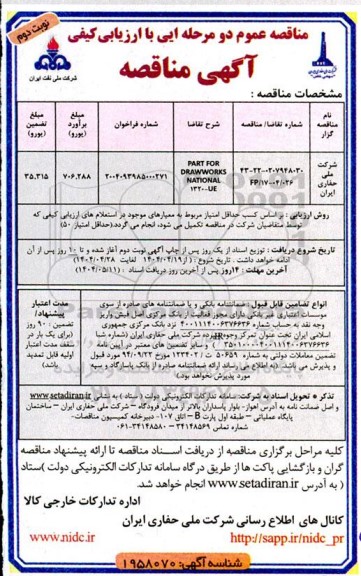 نوبت دوم
مناقصه عموم دو مرحله ایی با ارزیابی کیفی
آگهی مناقصه
شرکت ملی نفت ایران
مشخصات مناقصه :
نام مناقصه گزار
شماره تقاضا/ مناقصه
شرح تقاضا
شماره فراخوان
مبلغ برآورد (یورو)
مبلغ تضمین (یورو)
شرکت ملی حفاری ایران
۴۳-۲۲-۰۲۰۷۹۴۸۰۳۰
FP/۱۷-۰۴/۰۲۶
PART FOR DRAWWORKS NATIONAL ۱۳۲۰-UE
۲۰۰۴۰۹۳۹۸۵۰۰۰۲۷۱
۷۰۶,۲۸۸
۳۵,۳۱۵
روش ارزیابی : بر اساس کسب حداقل امتیاز مربوط به معیارهای موجود در استعلام های ارزیابی کیفی که
توسط متقاضیان شرکت در مناقصه تکمیل می شود، انجام می گردد.(حداقل امتیاز ۵۰)
تاریخ شروع دریافت : توزیع اسناد از یک روز پس از چاپ آگهی نوبت دوم آغاز شده و تا ۱۰ روز پس از آن
ادامه خواهد داشت . تاریخ شروع : ( از ۱۴۰۴/۰۴/۱۹ لغایت ۱۴۰۴/۰۴/۲۸)
آخرین مهلت : ۱۴روز پس از آخرین روز دریافت اسناد : (۱۴۰۴/۰۵/۱۱)
انواع تضامین قابل قبول : ضمانتنامه بانکی و یا ضمانتنامه های صادره از سوی
موسسات اعتباری غیر بانکی دارای مجوز فعالیت از بانک مرکزی اصل فیش واریز
وجه نقد به حساب شماره ۴۰۰۱۱۱۴۰۰۶۳۷۶۶۳۶ نزد بانک مرکزی جمهوری
اسلامی ایران تحت عنوان تمرکز وجوه
و سایر تضمین های معتبر در آیین نامه
تضمین معاملات دولتی به شماره ۵۰۶۵۹ ت/ ۱۲۳۴۰۲ مورخ ۹۴/۰۹/۲۲ مورد قبول
و پذیرش می باشد. (به اطلاع می رساند ارائه ضمانتنامه صادره از بانک پاسارگاد و سپه
مورد پذیرش نخواهد بود).
مدت اعتبار پیشنهاد/ تضمین : ۹۰ روز
(برای یک بار در سقف مدت اعتبار اولیه قابل تمدید باشد)
تذکر * تحویل اسناد به شرکت: سامانه تدارکات الکترونیکی دولت ( ستاد ) به نشانی www.setadiran.ir
و اصل ضمانت نامه به آدرس اهواز- بلوار پاسداران بالاتر از میدان فرودگاه – شرکت ملی حفاری ایران – ساختمان
پایگاه عملیاتی – طبقه اول پارت B – اتاق ۱۰۷- دبیرخانه کمیسیون مناقصات-
شماره تماس ۳۴۱۴۸۵۶۹ – ۳۴۱۴۸۵۸۰-۰۶۱
کلیه مراحل برگزاری مناقصه از دریافت اسناد مناقصه تا ارائه پیشنهاد مناقصه
گران و بازگشایی پاکت ها از طریق درگاه سامانه تدارکات الکترونیکی دولت (ستاد
) به آدرس www.setadiran.ir انجام خواهد شد.
اداره تدارکات خارجی کالا
کانال های اطلاع رسانی شرکت ملی حفاری ایران
www.nidc.ir
http://sapp.ir/nidc_pr
شناسه آگهی: ۱۹۵۸۰۷۰